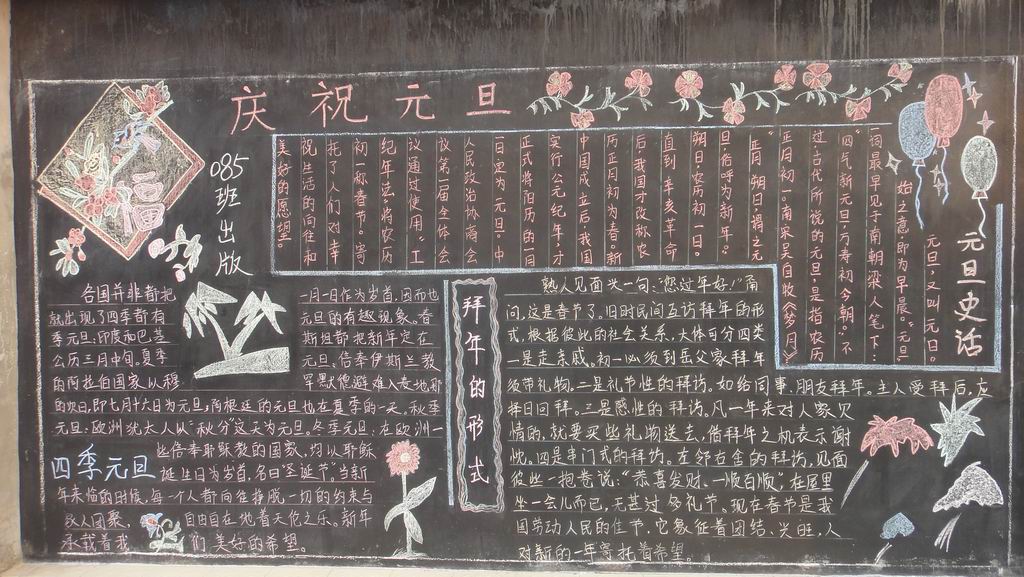 庆祝元旦
085班出版
元旦史话
元旦,又叫元日。
始之意即为早晨。"元旦"
一词最早见于南朝梁人笔下:
"四气新元旦,万寿初今朝。"不
过古代所说的元旦,是指农历
正月初一。南宋吴自牧《梦
"正月朔日,谓之元
旦,俗呼为新年。"
朔日农历初一日。
直到辛亥革命
后,我国才改称农
历正月初为春。新
中国成立后,我国
实行公元纪年,才
正式将阳历的一月
一日定为元旦。中
人民政治协商会
议第一届全体会
议通过使用"工
纪年法",将农历
初一称春节。寄
托了人们对幸
祝生活的向往和
美好的愿望
四季元旦
各国并非都把
一月一日作为岁首,因而也
就出现了四季都有
元旦的有趣现象。春
季元旦,印度和巴基
斯坦都把新年定在
么历三月中旬。夏季
元旦,信奉伊斯兰教
的阿拉伯国家以穆
罕默德避难人麦地那
的次日,即七月十六日为元旦,阿根廷的元旦也在夏季的一天。秋季
元旦:欧洲犹太人以"秋分"这天为元旦。冬季元旦:在欧洲一
些信奉耶稣教的国家,均以耶稣
诞生日为岁首,名曰"圣诞节"。当新
年来临的时候,每一个人都向往挣脱,一切的约束与
家人团聚,自由自在地着天伦之乐。新年
承载着我们美好的希望。
拜年的形式
熟人见面头一句:"您过年好!"角
问,这是春节了。旧时民间互访拜年的形
式,根据彼此的社会关系,大体可分四类
一是走亲戚。初一必须到岳父家拜年
须带礼物。二是礼节性的拜访。如给同事,朋友拜年。主人受拜后,应
择日回拜。三是感性的拜访。凡一年来对人家欠
情的,就要买些礼物送去,借拜年之机表示谢
忱。四是串门式的拜访。左邻右舍的拜访,见面
彼此一抱卷说:"恭喜发财、一顺百顺,在屋里
坐一会儿而已,无甚过多礼节。现在春节是我
国劳动人民的佳节,它象征着团结、兴旺,人
对新的一年寄托着希望。